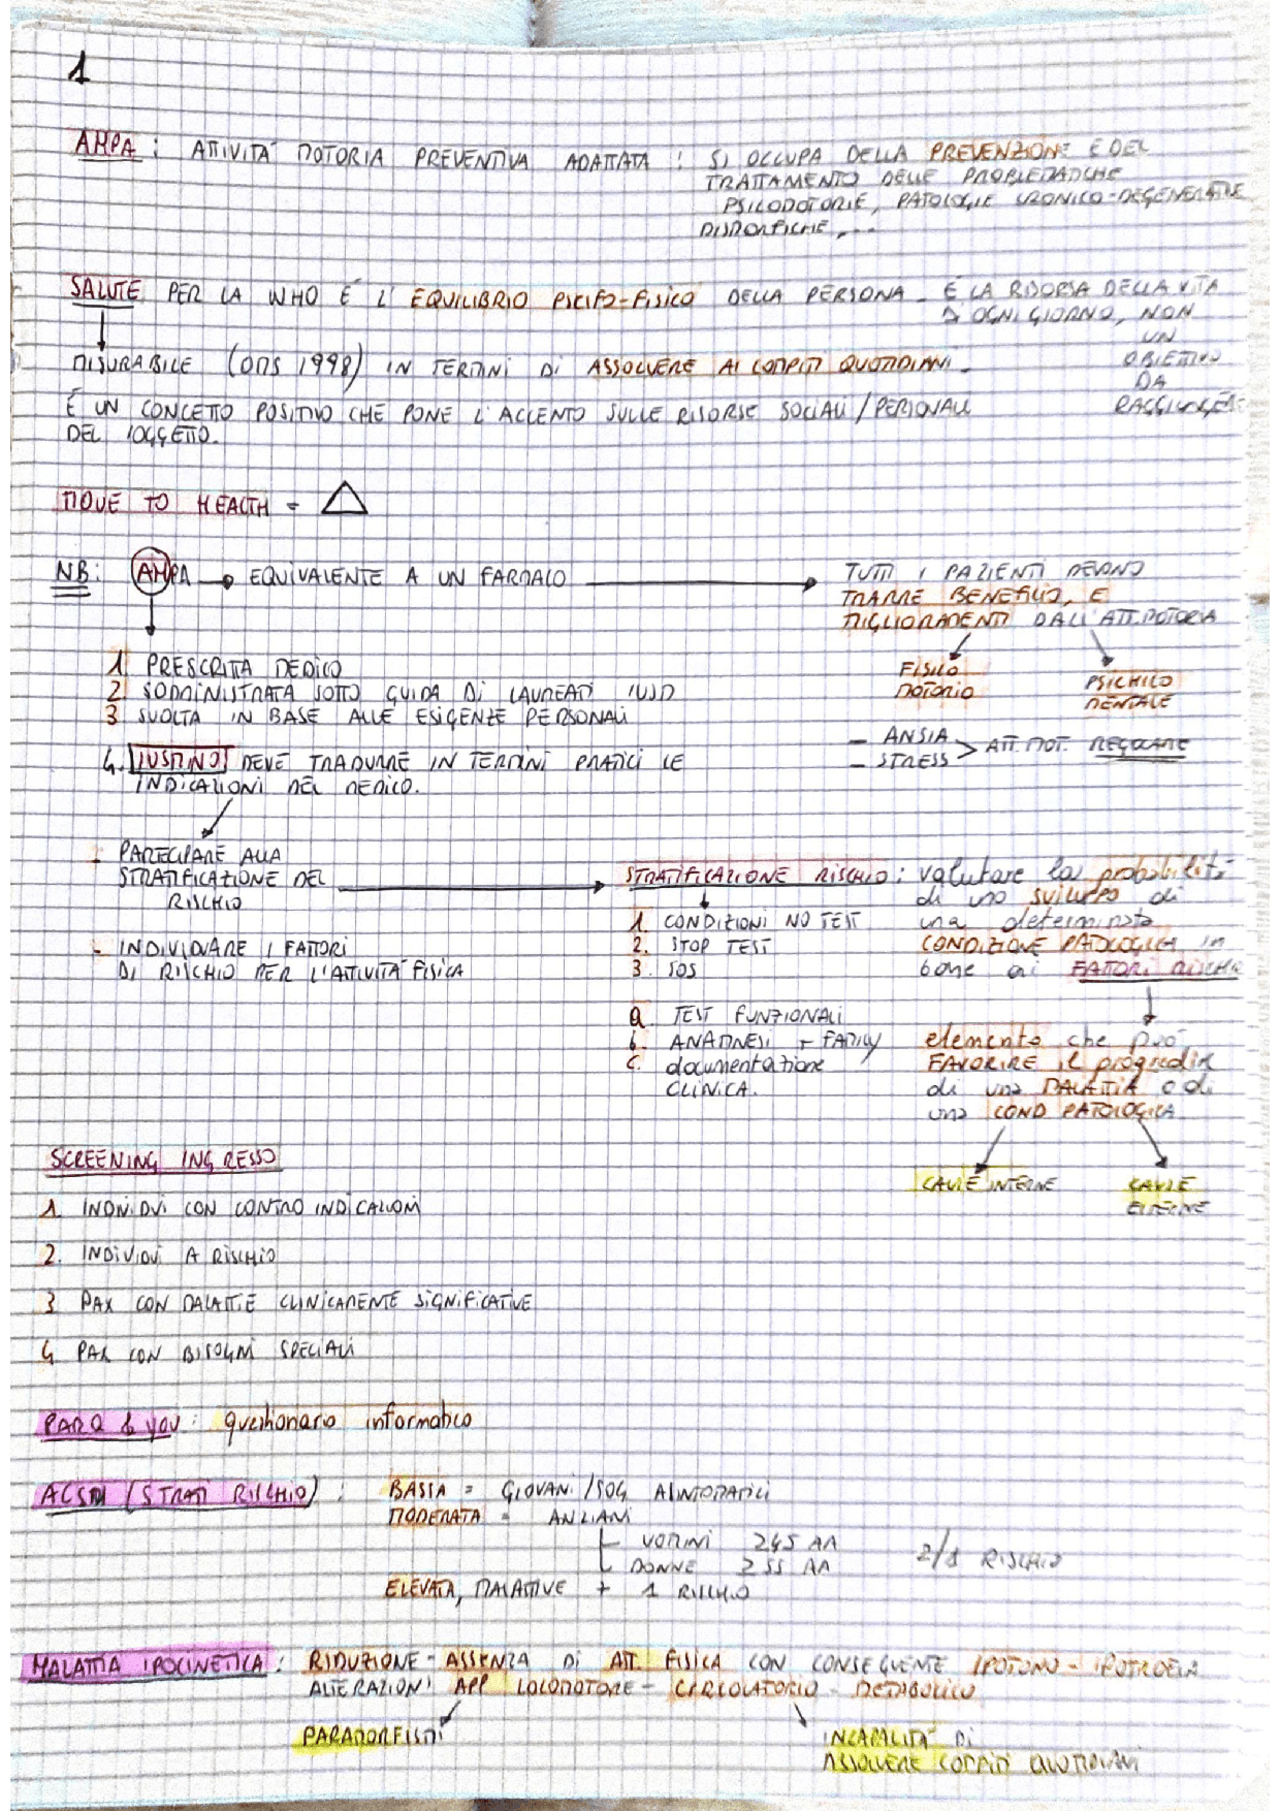 1
AMPA: ATTIVITÀ MOTORIA PREVENTIVA ADATTATA: SI OCCUPA DELLA PREVENZIONE E DEL
TRATTAMENTO DELLE PROBLEMATICHE
PSICOMOTORIE, PATOLOGIE CRONICO-DEGENERATIVE
DISMORFICHE,...
SALUTE PER LA WHO È L'EQUILIBRIO PSICO-FISICO DELLA PERSONA - È LA RISORSA DELLA VITA
DI OGNI GIORNO, NON
UN
OBIETTIVO
DA
RAGGIUNGERE
MISURABILE (OMS 1998) IN TERMINI DI ASSOLVERE AI COMPITI QUOTIDIANI.
È UN CONCETTO POSITIVO CHE PONE L'ACCENTO SULLE RISORSE SOCIALI/PERSONALI
DEL SOGGETTO.
MOVE TO HEALTH =
NB: AMPA → EQUIVALENTE A UN FARMACO → TUTTI I PAZIENTI DEVONO
TRARRE BENEFICIO, E
MIGLIORAMENTI DALL'ATT. MOTORIA
FISICO
MOTORIO
PSICHICO
MENTALE
1 PRESCRITTA MEDICO
2 SOMMINISTRATA SOTTO GUIDA DI LAUREATI IUSM
3 SVOLTA IN BASE ALLE ESIGENZE PERSONALI
- ANSIA
- STRESS > ATT. MOT. REGOLARE
4. IUSMINO DEVE TRADURRE IN TERMINI PRATICI LE
INDICAZIONI DEL MEDICO.
- PARTECIPARE ALLA
STRATIFICAZIONE DEL
RISCHIO
- INDIVIDUARE I FATTORI
DI RISCHIO PER L'ATTIVITÀ FISICA
STRATIFICAZIONE RISCHIO: valutare la probabilità
di uno sviluppo di
una determinata
CONDIZIONE PATOLOGICA in
base ai FATTORI RISCHIO
1. CONDIZIONI NO TEST
2. STOP TEST
3. SOS
a TEST FUNZIONALI
b. ANAMNESI + FAMILY
c. documentazione
CLINICA.
elemento che può
FAVORIRE il progredire
di una MALATTIA o di
una COND PATOLOGICA
CAUSE INTERNE
CAUSE
ESTERNE
SCREENING INGRESSO
1 INDIVIDUI CON CONTRO INDICAZIONI
2. INDIVIDUI A RISCHIO
3 PAX CON MALATTIE CLINICAMENTE SIGNIFICATIVE
4 PAX CON BISOGNI SPECIALI
PARQ & you: questionario informatico
ACSM (STRATI RISCHIO): BASSA = GIOVANI/SOG ASINTOMATICI
MODERATA = ANZIANI
UOMINI ≥45 AA
DONNE ≥55 AA
2/+ RISCHIO
ELEVATA, MALATTIVE + 1 RISCHIO
MALATTIA IPOCINETICA: RIDUZIONE - ASSENZA DI ATT. FISICA CON CONSEGUENTE IPOTONO - IPOTROFIA
ALTERAZIONI APP LOCOMOTORE - CIRCOLATORIO - METABOLICO
PARAMORFISMI
INCAPACITÀ DI
ASSOLVERE COMPITI QUOTIDIANI